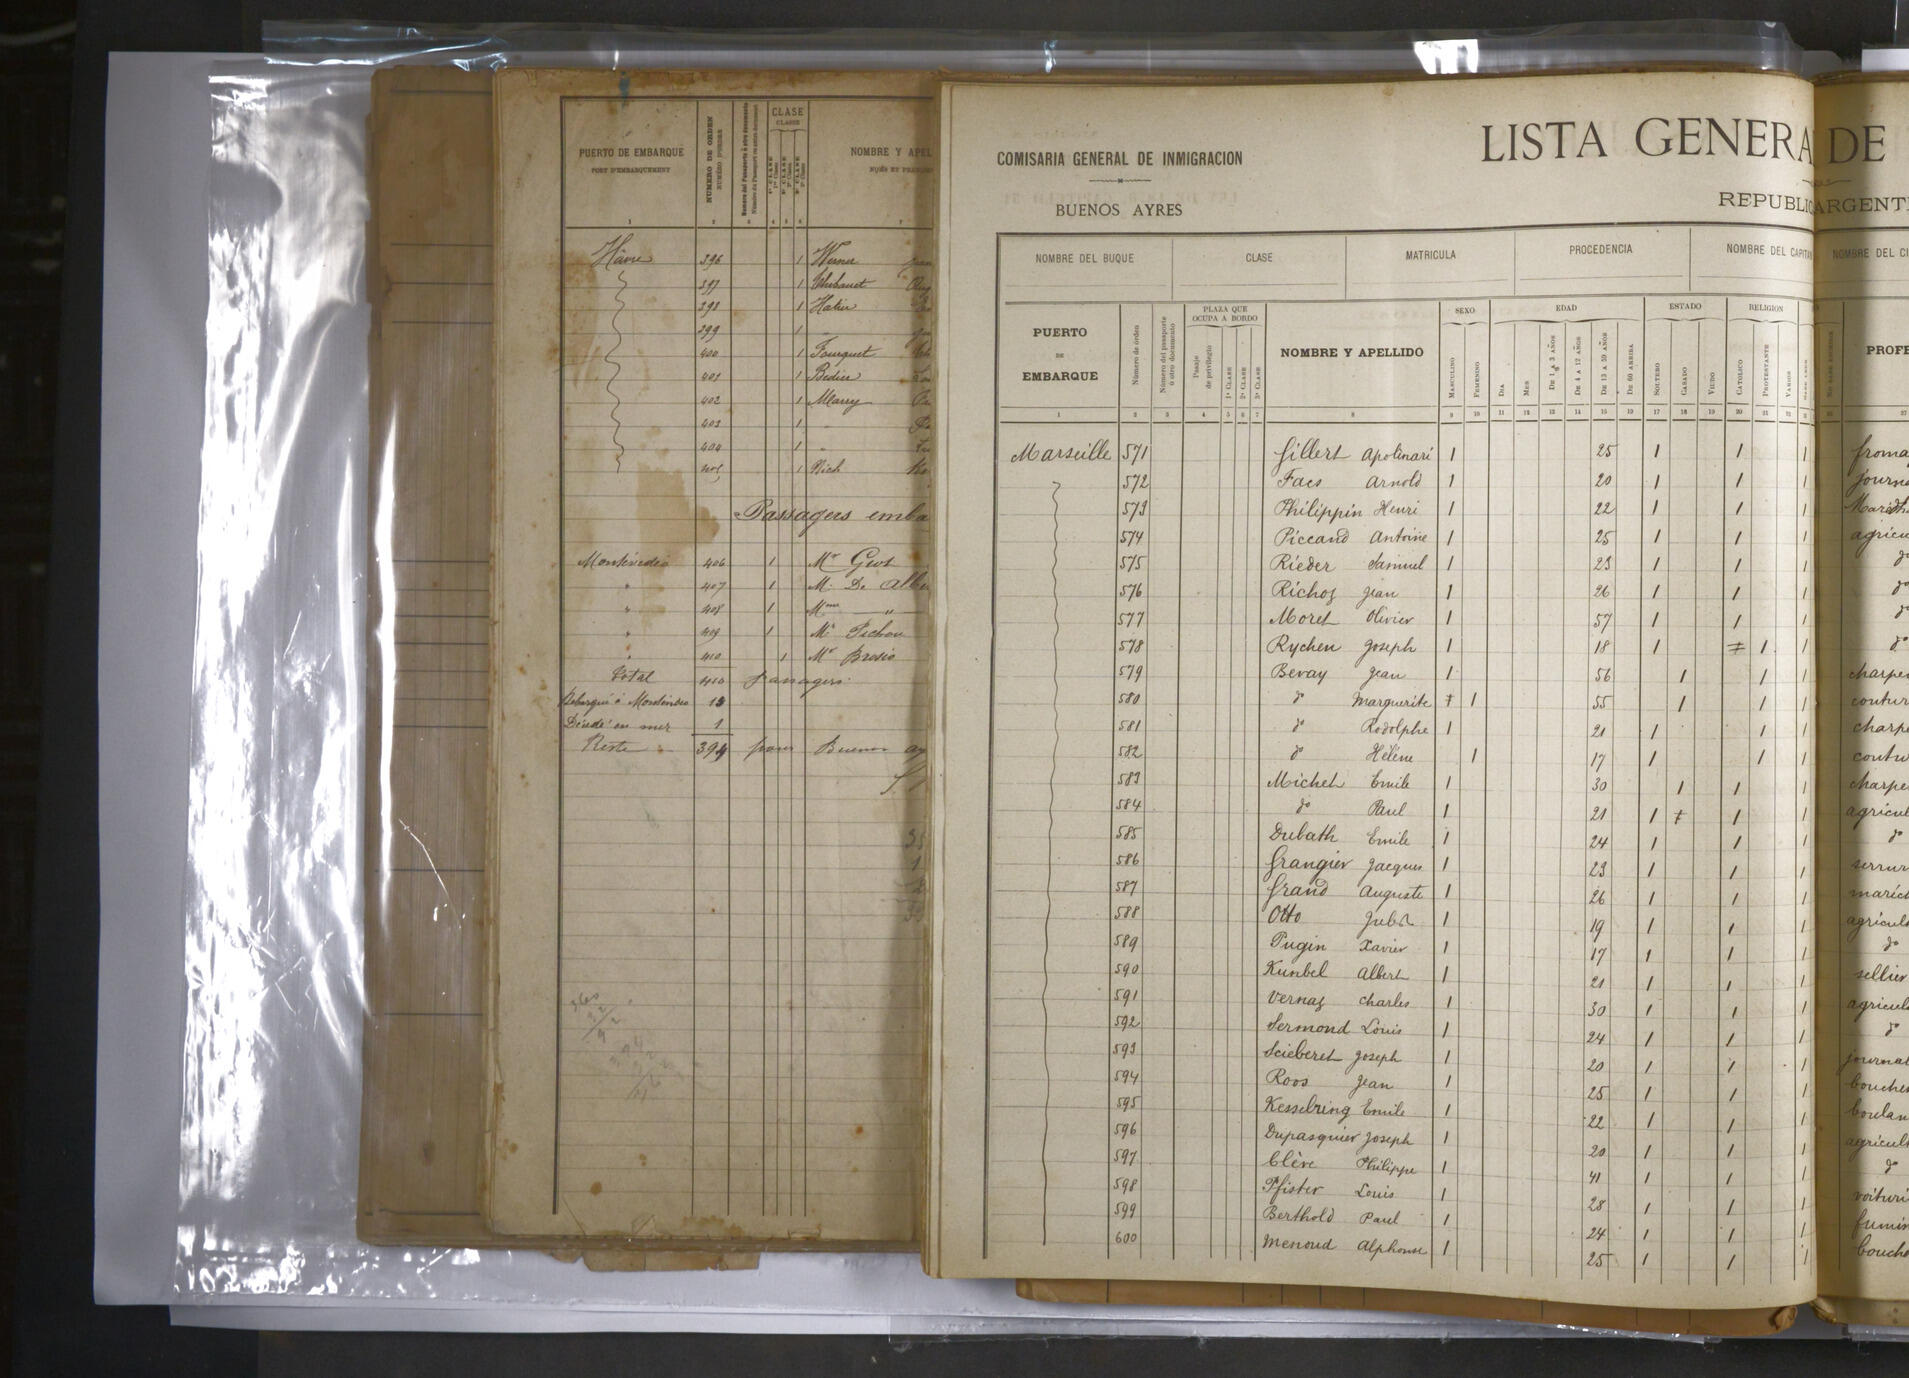 PUERTO DE EMBARQUE
PORT D'EMBARQUEMENT
NUMERO DE ORDEN
NUMÉRO D'ORDRE
CLASE
CLASSE
NOMBRE Y APEL
1 2 3 4 5 6 7
Hâvre 396 1 Werner
397 1 Thibaut
398 1
399 1 "
400 1 Fourquet
401 1 Bedier
402 1 Marry
403 1 "
404 1 "
405 1 Rich
Passagers emba
Montévidéo 406 1 Mr Gros
" 407 1 M. De Albu
" 408 1 Mme "
" 409 1 Mr Pichon
" 410 1 Mr Brosio
Total 410 passagers
Débarqué à Montévidéo 15
Décédé en mer 1
Reste 394 pour Buenos ay
COMISARIA GENERAL DE INMIGRACION
BUENOS AYRES
LISTA GENERA DE
REPUBLIC ARGENTI
NOMBRE DEL BUQUE CLASE MATRICULA PROCEDENCIA NOMBRE DEL CAPITA NOMBRE DEL CI
PUERTO DE EMBARQUE
Número de órden
Número del pasaporte ó otro documento
PLAZA QUE OCUPA A BORDO
Pasaje de privilegio
1ª CLASE
2ª CLASE
3ª CLASE
NOMBRE Y APELLIDO
SEXO
MASCULINO
FEMENINO
EDAD
DIA
MES
DE 1 A 3 AÑOS
DE 4 A 12 AÑOS
DE 13 A 59 AÑOS
DE 60 ARRIBA
ESTADO
SOLTERO
CASADO
VIUDO
RELIGION
CATOLICO
PROTESTANTE
VARIOS
PROFE
1 2 3 4 5 6 7 8 9 10 11 12 13 14 15 16 17 18 19 20 21 22
Marseille 571 Gillert Apolinari 1 25 1 1 1 froma
572 Faes Arnold 1 20 1 1 1 journa
573 Philippin Henri 1 22 1 1 1
574 Piccand Antoine 1 25 1 1 1 agricu
575 Rieder Samuel 1 23 1 1 1 do
576 Richoz Jean 1 26 1 1 1 do
577 Moret Olivier 1 57 1 1 1 do
578 Rychen Joseph 1 18 1 1 1 do
579 Bevay Jean 1 56 1 1 1 charpe
580 do Marguerite 1 55 1 1 1 coutur
581 do Rodolphe 1 21 1 1 1 charpe
582 do Hélène 1 17 1 1 1 coutu
583 Michel Emile 1 30 1 1 1 charpe
584 do Paul 1 21 1 1 1 agricul
585 Dubath Emile 1 24 1 1 1 do
586 Grangier Jacques 1 23 1 1 1 serrur
587 Grand Auguste 1 26 1 1 1 maréc
588 Otto 1 19 1 1 1 agricul
589 Pugin Xavier 1 17 1 1 1 do
590 Kunbel Albert 1 21 1 1 1 sellier
591 Vernaz Charles 1 30 1 1 1 agricul
592 Sermond Louis 1 24 1 1 1 do
593 Scieberet Joseph 1 20 1 1 1 journal
594 Roos Jean 1 25 1 1 1 boucher
595 Kesselring Emile 1 22 1 1 1 boulan
596 Dupasquier Joseph 1 20 1 1 1 agricul
597 Clère Philippe 1 41 1 1 1 do
598 Pfister Louis 1 28 1 1 1 voituri
599 Berthold Paul 1 24 1 1 1 fumis
600 Menoud Alphonse 1 25 1 1 1 bouche